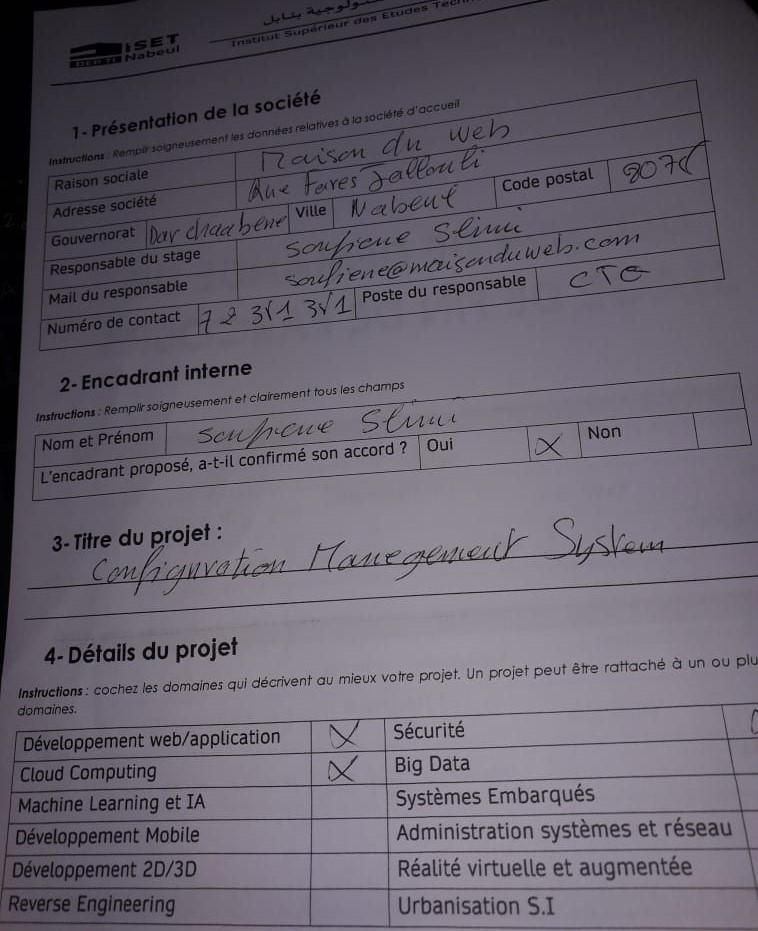 ISET
Nabeul
Institut Supérieur des Etudes
1- Présentation de la société
Instructions : Remplir soigneusement les données relatives à la société d'accueil
Raison sociale Maison du web
Adresse société Rue Fares Jallouli
Gouvernorat Dar chaabene Ville Nabeul Code postal
Responsable du stage Soufiene Slimi
Mail du responsable soufiene@maisonduweb.com
Numéro de contact Poste du responsable CTO
2- Encadrant interne
Instructions : Remplir soigneusement et clairement tous les champs
Nom et Prénom Soufiene Slimi
L'encadrant proposé, a-t-il confirmé son accord ? Oui X Non
3- Titre du projet :
Configuration Manegement System
4- Détails du projet
Instructions : cochez les domaines qui décrivent au mieux votre projet. Un projet peut être rattaché à un ou plu
domaines.
Développement web/application X Sécurité
Cloud Computing X Big Data
Machine Learning et IA Systèmes Embarqués
Développement Mobile Administration systèmes et réseau
Développement 2D/3D Réalité virtuelle et augmentée
Reverse Engineering Urbanisation S.I